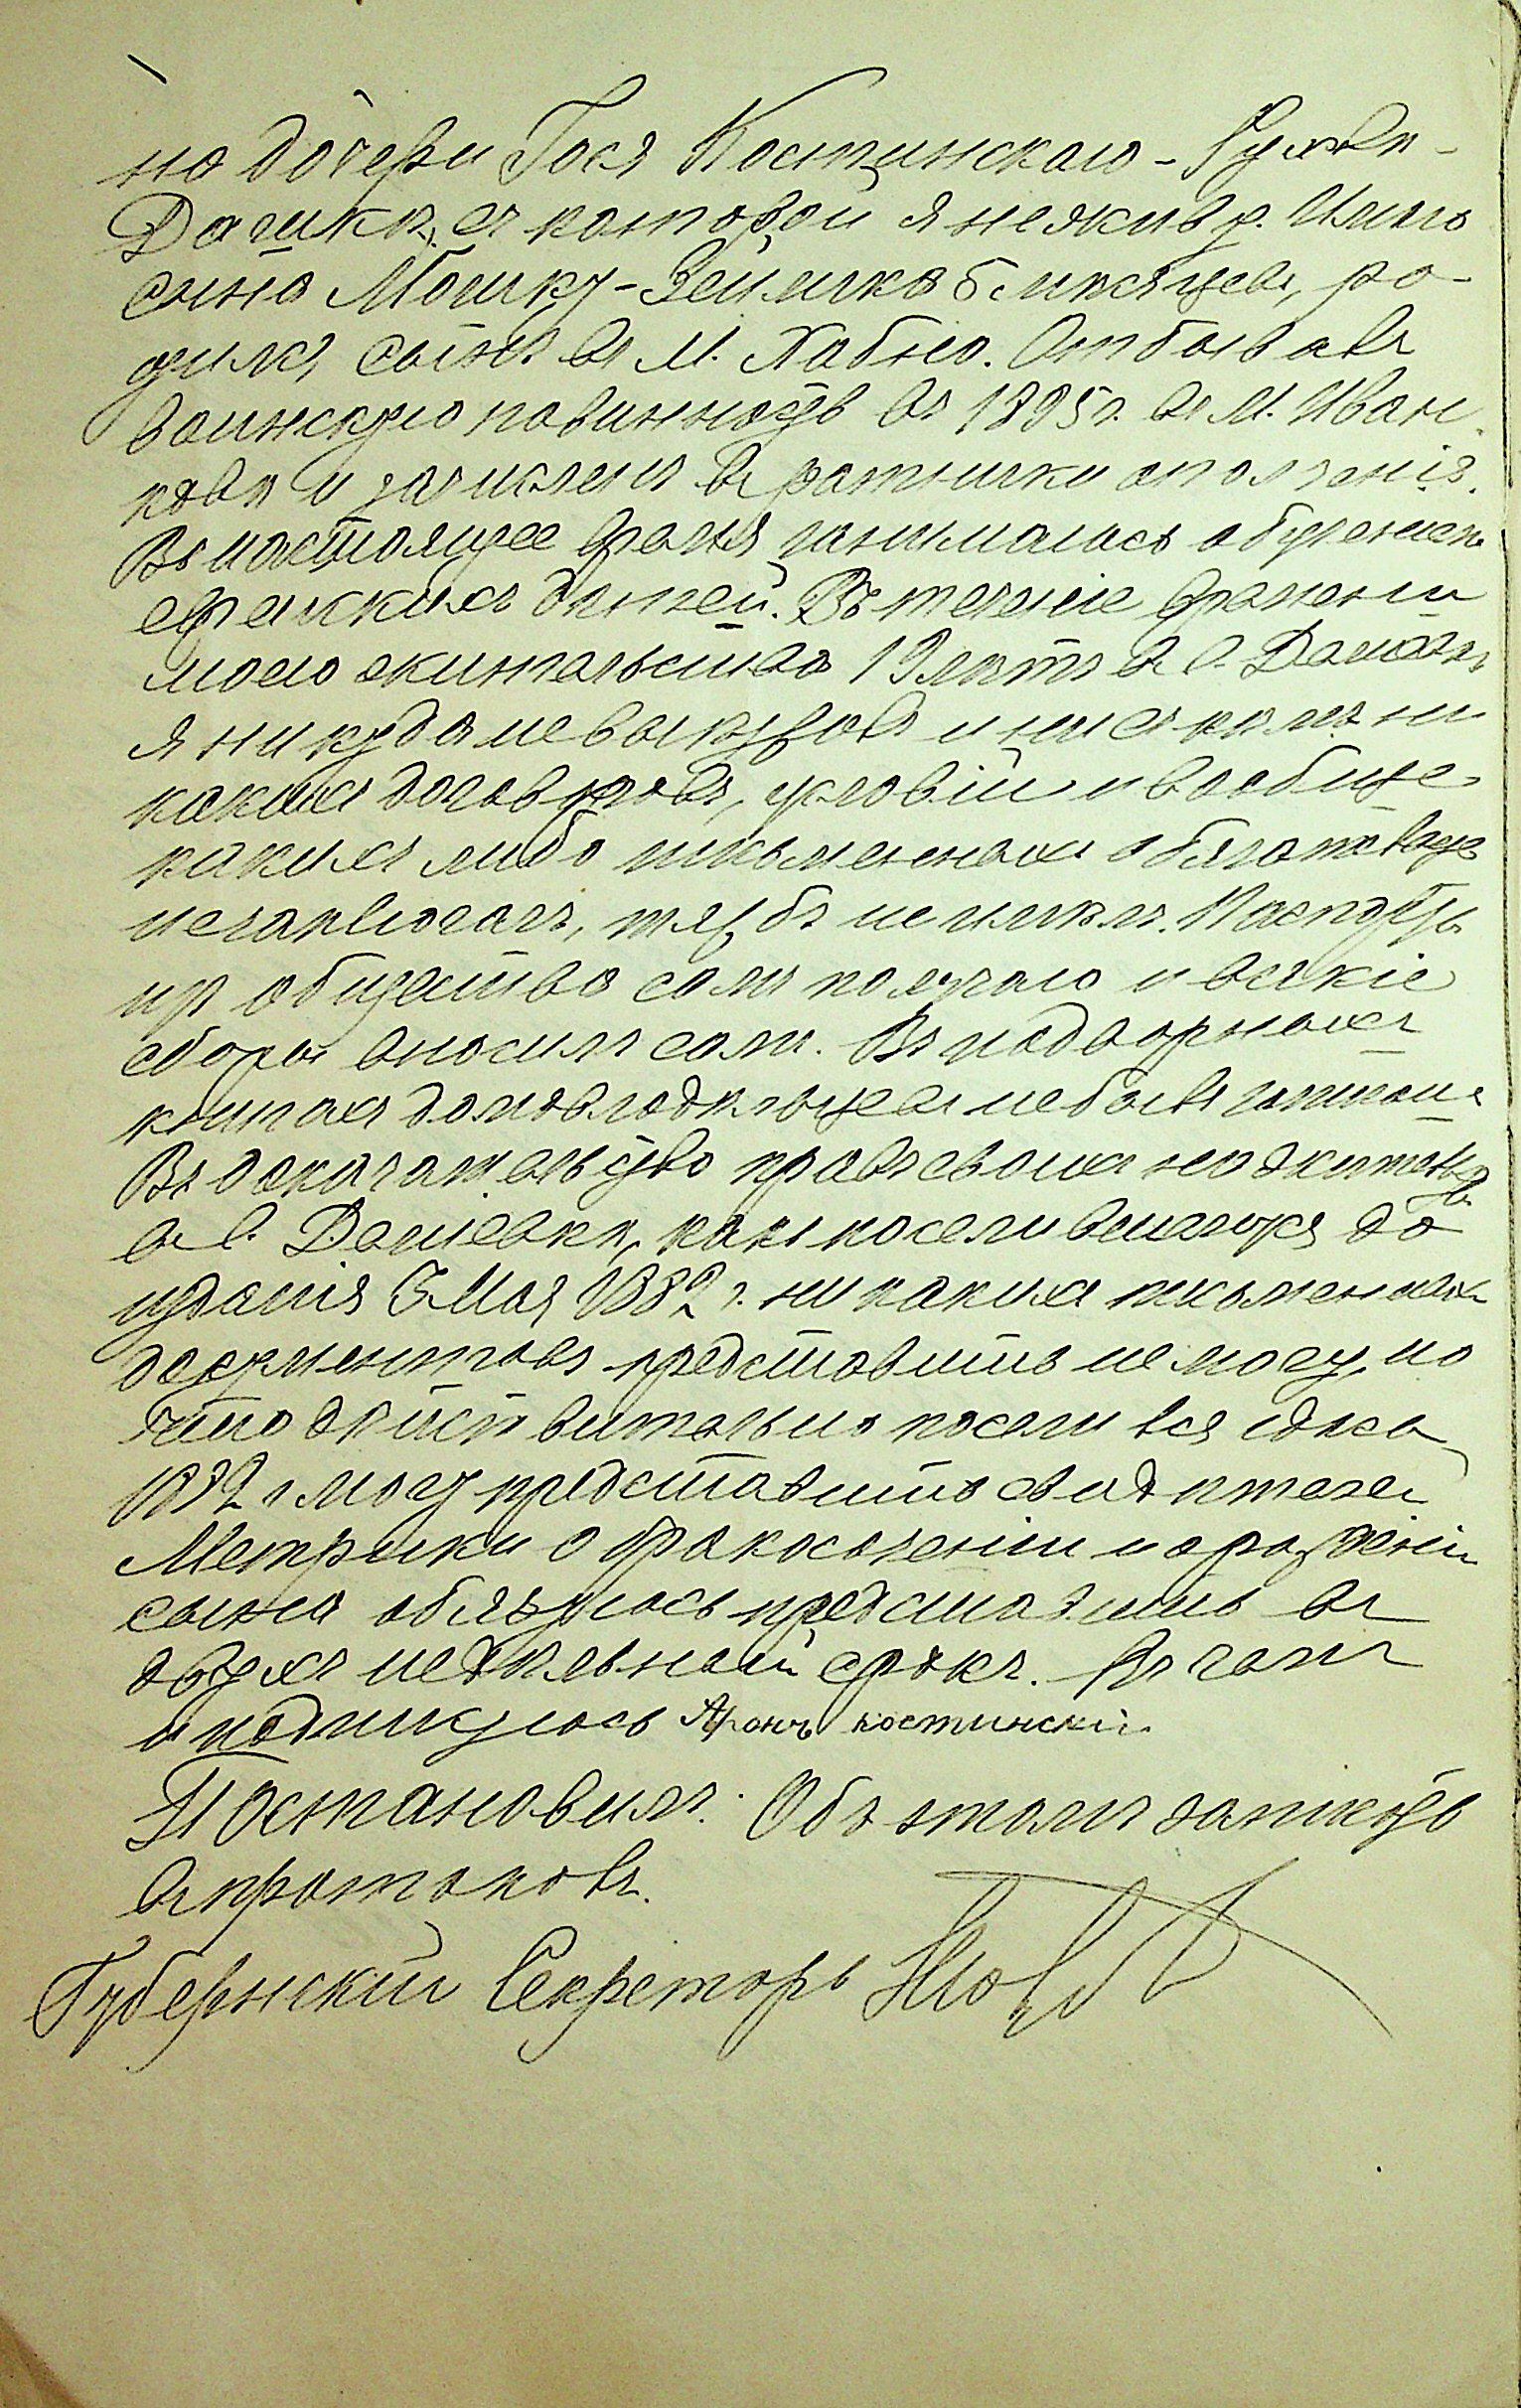 на дочери Гося Костинскаго - Рухли -
Дашкѣ, съ которой я не живу. Имѣю
сына Мошку - Зейлика 5 мѣсяцевъ, ро-
дился сынъ въ м. Хабно. Отбывалъ
воинскую повинность въ 1895 г. въ м. Иван
ковѣ и зачисленъ въ ратники ополченія.
Въ настоящее время занимаюсь обученіемъ
еврейскихъ дѣтей. Въ теченіе времени
моего жительства 19 лѣтъ въ с.
я никуда не выѣзжалъ и ни съ кѣмъ ни
какихъ договоровъ, условій и вообще
какихъ либо письменныхъ обязательствъ
не заключалъ, тяжбъ не имѣлъ. Паспорты
изъ общества самъ получаю и всякіе
сборы вносилъ самъ. Въ подворныхъ
книгахъ домовладѣльцевъ небылъ записанъ
Въ доказательство правъ своихъ на жительство
въ с. какъ поселившагося до
изданія 3 Мая 1882 г. никакихъ письменныхъ
документовъ представить не могу, но
что дѣйствительно поселился сюда
1882 г могу представить свидѣтелей
Метрики о бракосочетеніи и о рожденіи
сына обязуюсь представить въ
двухъ недѣльный срокъ. Въ чемъ
и подпишусь Аронъ костинскій
Постановилъ: Объ этомъ записать
въ протоколъ.
Губернскій Секретарь